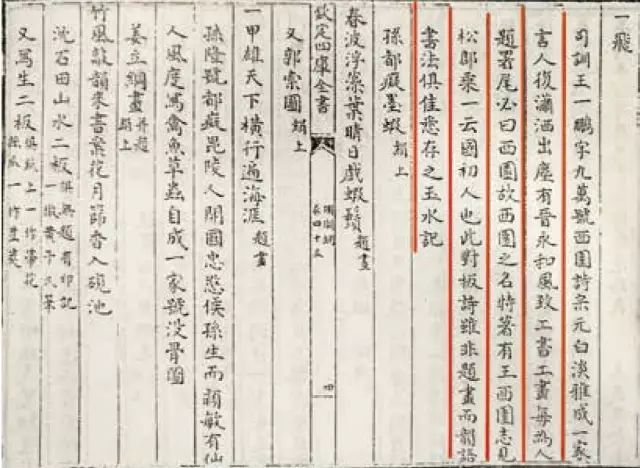 一飛
司訓王一鵬字九萬號西園詩宗元白淡雅成一家
言人復瀟洒出塵有晉永和風致工書工畫每為人
題署尾必曰西園故西園之名特著有王西園志見
松郡乘一云國初人也此對板詩雖非題畫而韻語
書法俱佳悉存之玉水記
孫都癡墨蝦 絹上
春波浮藻葉晴日戲蝦鬚 題畫
欽定四庫全書
珊瑚網
卷四十三
四
又郭索圖 絹上
一甲雄天下橫行遍海涯 題畫
孫隆號都癡毘陵人開國忠愍侯孫生而穎敏有仙
人風度寫禽魚草蟲自成一家號沒骨圖
姜立綱畫并題 絹上
竹風敲韻來書案花月篩香入硯池
沈石田山水二板 俱無題有印記 一倣黃子久筆
又寫生二板 俱紙上 一作帶花 一作豆莢